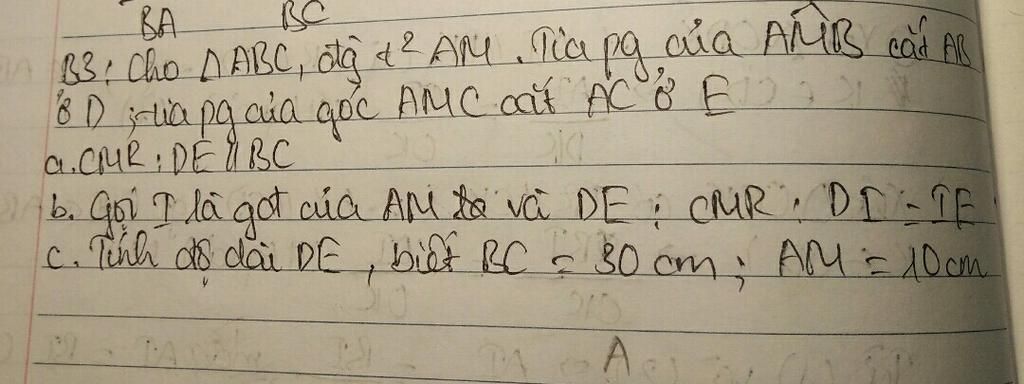 BA BC
B3: Cho ΔABC, đg t² AM. Tia pg của AM̂B cắt AB
ở D; tia pg của góc AMC cắt AC ở E
a. CMR: DE // BC
b. Gọi I là gđ của AM và DE; CMR: DI = IE
c. Tính độ dài DE, biết BC = 30 cm; AM = 10cm
A